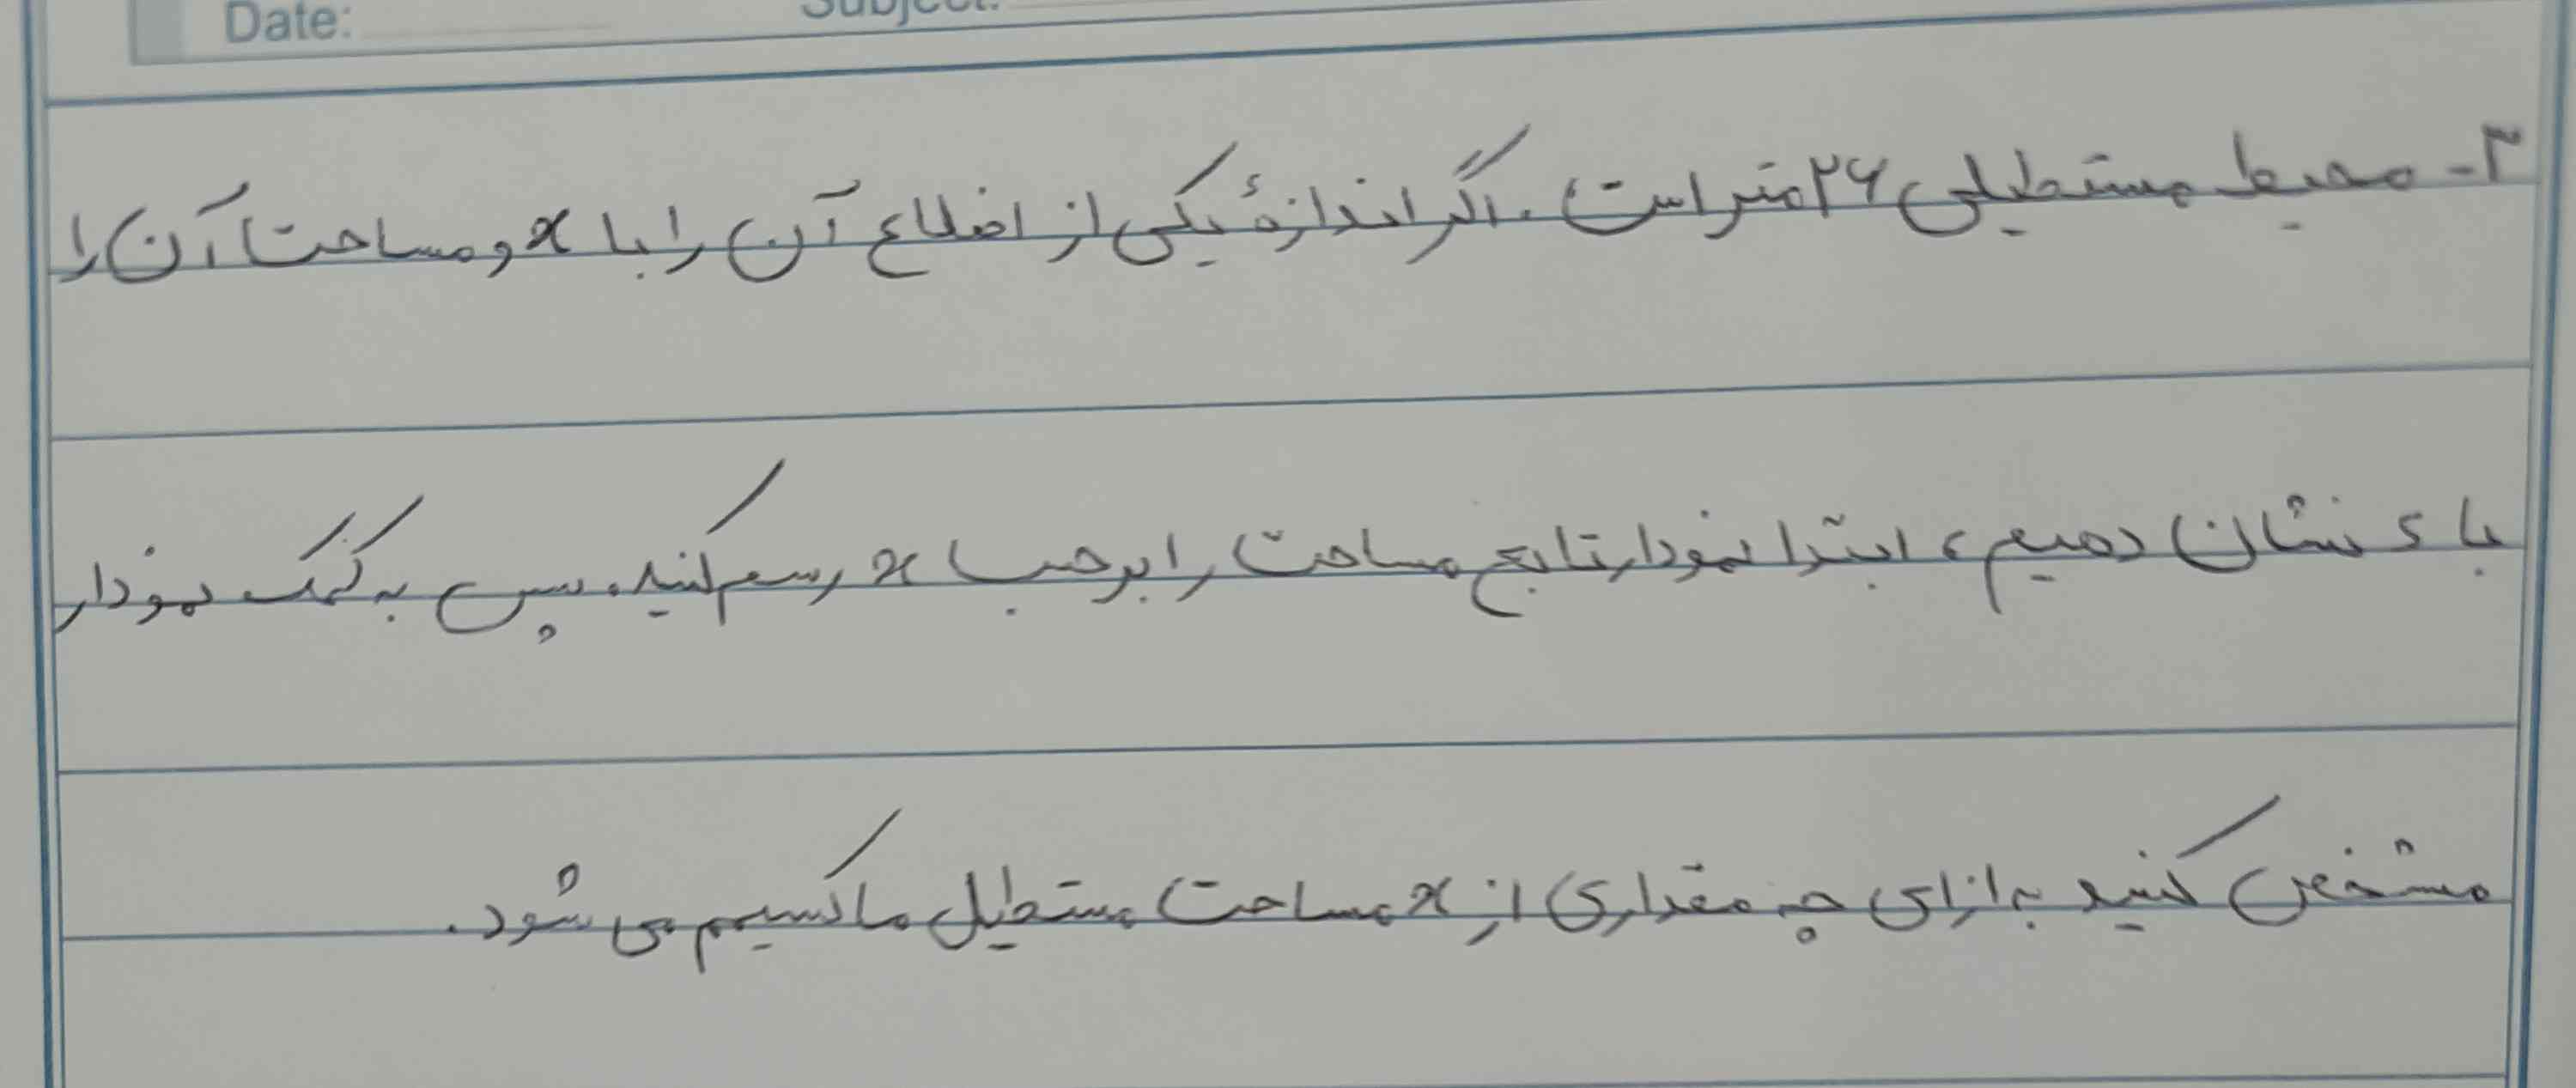 Date: Subject:
۳- محیط مستطیلی ۲۶ متر است. اگر اندازهٔ یکی از اضلاع آن را با x و مساحت آن را
با s نشان دهیم، ابتدا نمودار تابع مساحت را برحسب x رسم کنید. سپس به کمک نمودار
مشخص کنید به ازای چه مقداری از x مساحت مستطیل ماکسیمم می شود.